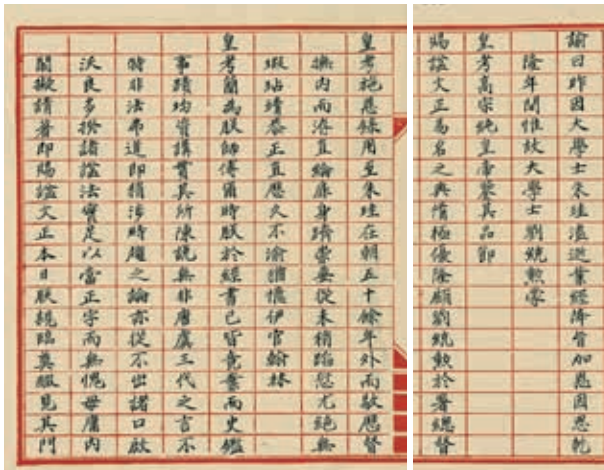 諭曰昨因大學士朱珪溘逝業經降旨加恩因思乾
隆年間惟故大學士劉統勲蒙
皇考高宗純皇帝鑒其品節
賜諡文正易名之典備極優隆顧劉統勲於署總督
皇考施恩錄用至朱珪在朝五十餘年外而敭歷督
撫內而洊直綸扉身躋崇要從未稍蹈愆尤絶無
瑕玷靖恭正直歷久不渝猶憶伊官翰林
皇考簡為朕師傅爾時朕於經書已皆竟業而史鑑
事蹟均資講貫其所陳說無非唐虞三代之言不
特非法弗道即稍涉時趨之論亦從不出諸口啟
沃良多揆諸諡法實足以當正字而無愧毋庸內
閣擬請著即賜諡文正本日朕親臨奠醊見其門